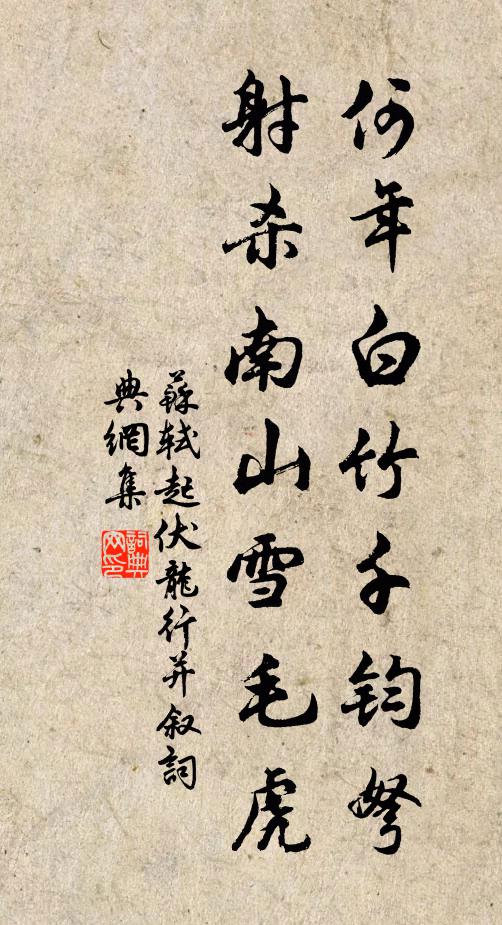 何年白竹千鈞弩
射杀南山雪毛虎
蘇軾起伏龍行并叙詞
典網集
詞典網印